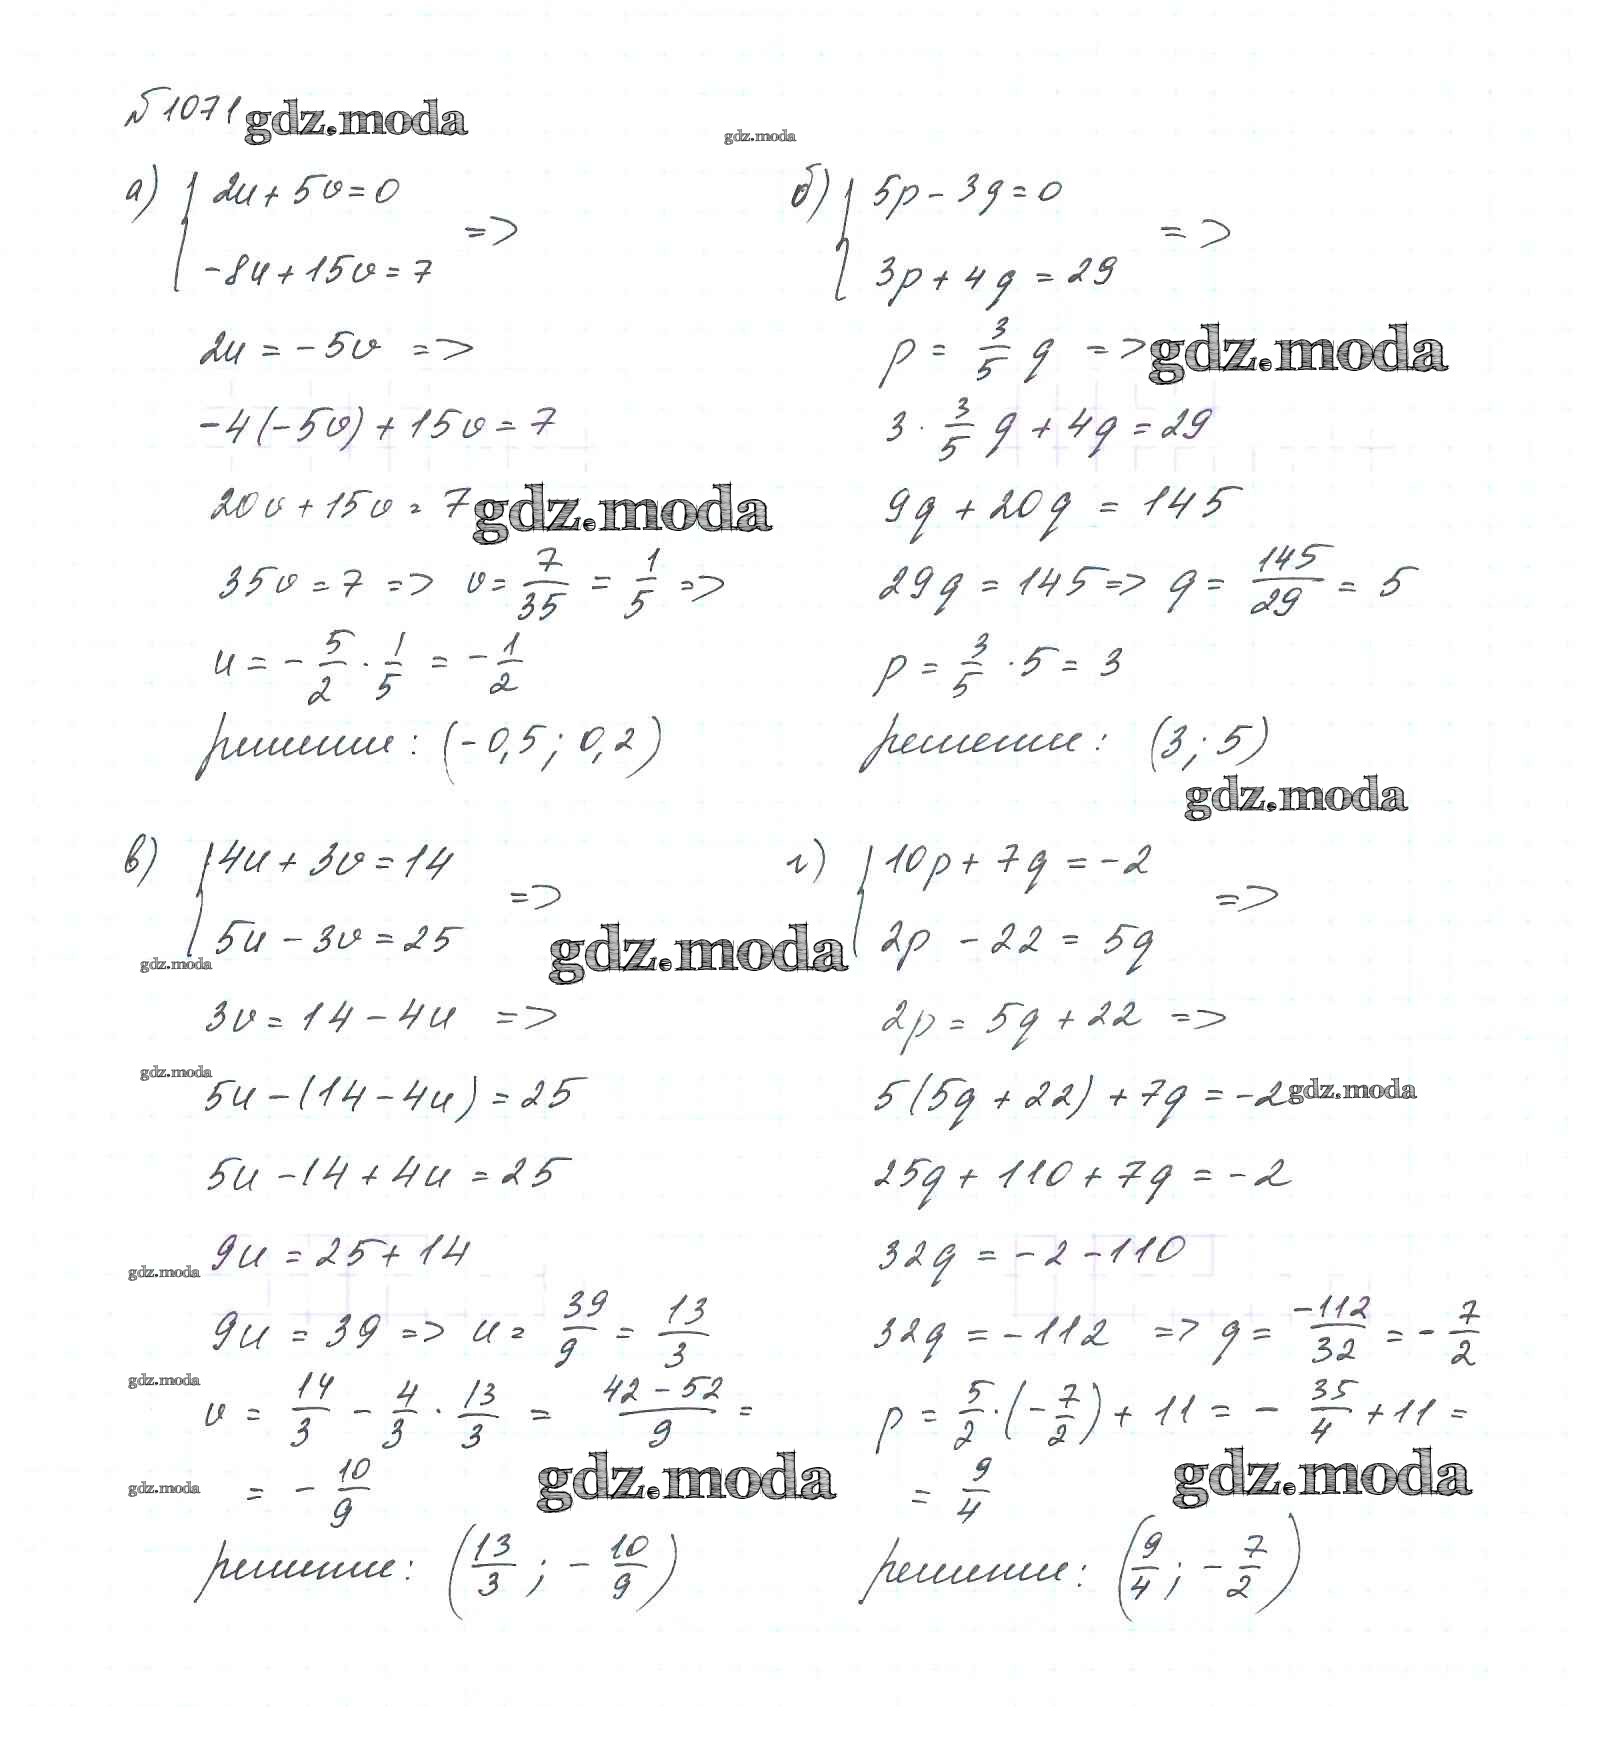 №1071 gdz.moda
gdz.moda
а) { 2u + 5v = 0
-8u + 15v = 7 =>
2u = -5v =>
-4(-5v) + 15v = 7
20v + 15v = 7 gdz.moda
35v = 7 => v = 7/35 = 1/5 =>
u = - 5/2 · 1/5 = - 1/2
решение: (-0,5; 0,2)
б) { 5p - 3q = 0
3p + 4q = 29 =>
p = 3/5 q => gdz.moda
3 · 3/5 q + 4q = 29
9q + 20q = 145
29q = 145 => q = 145/29 = 5
p = 3/5 · 5 = 3
решение: (3; 5)
gdz.moda
в) { 4u + 3v = 14
5u - 3v = 25 =>
gdz.moda
gdz.moda
3v = 14 - 4u =>
gdz.moda
5u - (14 - 4u) = 25
5u - 14 + 4u = 25
9u = 25 + 14
gdz.moda
9u = 39 => u = 39/9 = 13/3
gdz.moda
v = 14/3 - 4/3 · 13/3 = 42 - 52/9 =
gdz.moda
= - 10/9
gdz.moda
решение: (13/3; - 10/9)
г) { 10p + 7q = -2
2p - 22 = 5q =>
2p = 5q + 22 =>
5(5q + 22) + 7q = -2 gdz.moda
25q + 110 + 7q = -2
32q = -2 - 110
32q = -112 => q = -112/32 = - 7/2
p = 5/2 · (- 7/2) + 11 = - 35/4 + 11 =
= 9/4
gdz.moda
решение: (9/4; - 7/2)